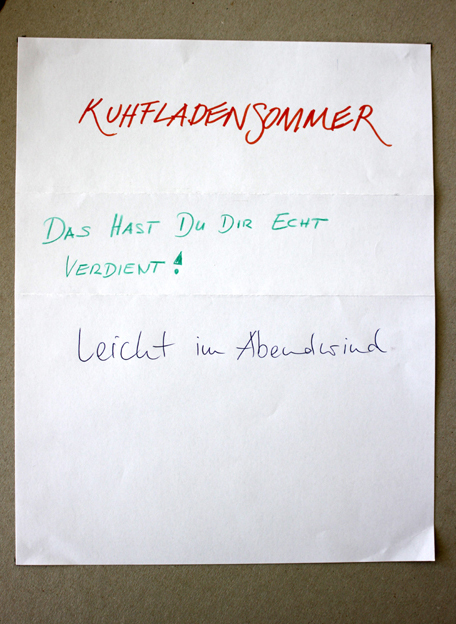 KUHFLADENSOMMER
DAS HAST DU DIR ECHT
VERDIENT!
Leicht im Abendwind